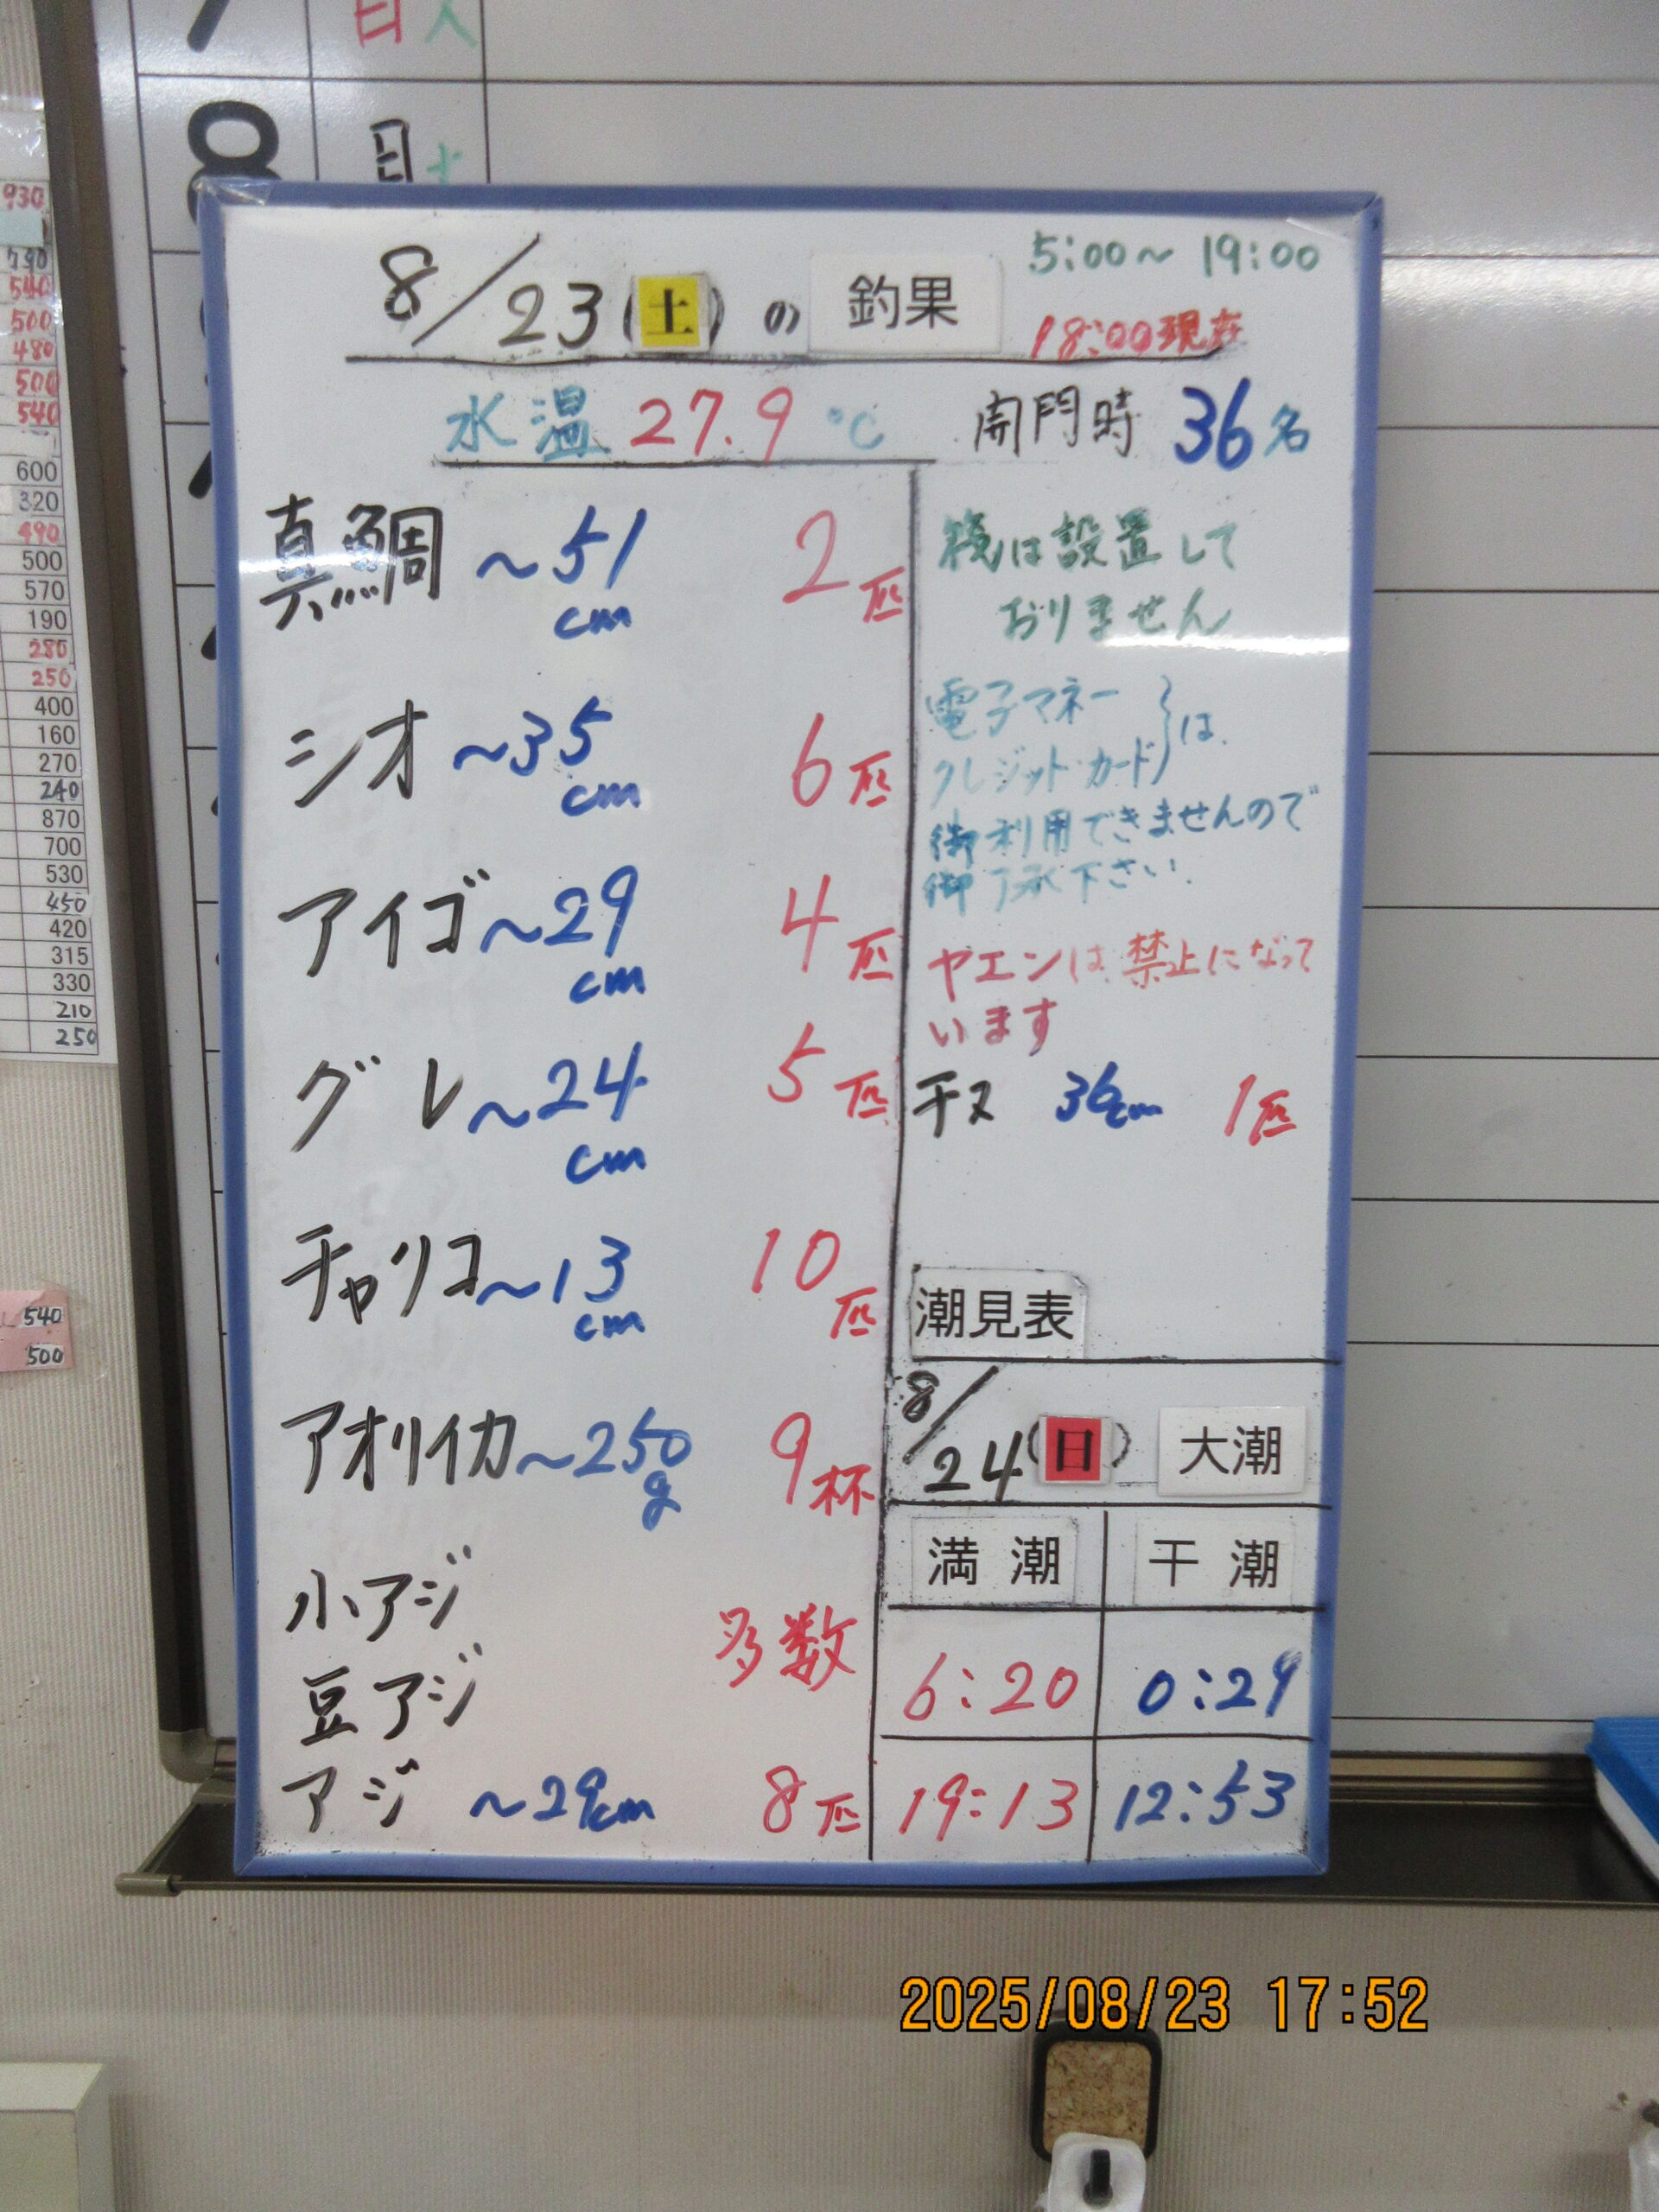 日
8 月 土
930
790
540
500
480
500
540
600
320
490
500
570
190
280
250
400
160
270
240
870
700
530
450
420
315
330
210
250
540
500
8/23(土)の釣果
5:00~19:00
18:00現在
水温 27.9℃ 開門時 36名
真鯛 ~51cm 2匹
シオ ~35cm 6匹
アイゴ ~29cm 4匹
グレ ~24cm 5匹
チャリコ ~13cm 10匹
アオリイカ ~250g 9杯
小アジ
豆アジ
多数
アジ ~29cm 8匹
筏は設置して
おりません
電子マネー
クレジットカード}は
御利用できませんので
御了承下さい.
ヤエンは禁止になって
います
チヌ 36cm 1匹
潮見表
8/24(日) 大潮
満潮 干潮
6:20 0:29
19:13 12:53
2025/08/23 17:52